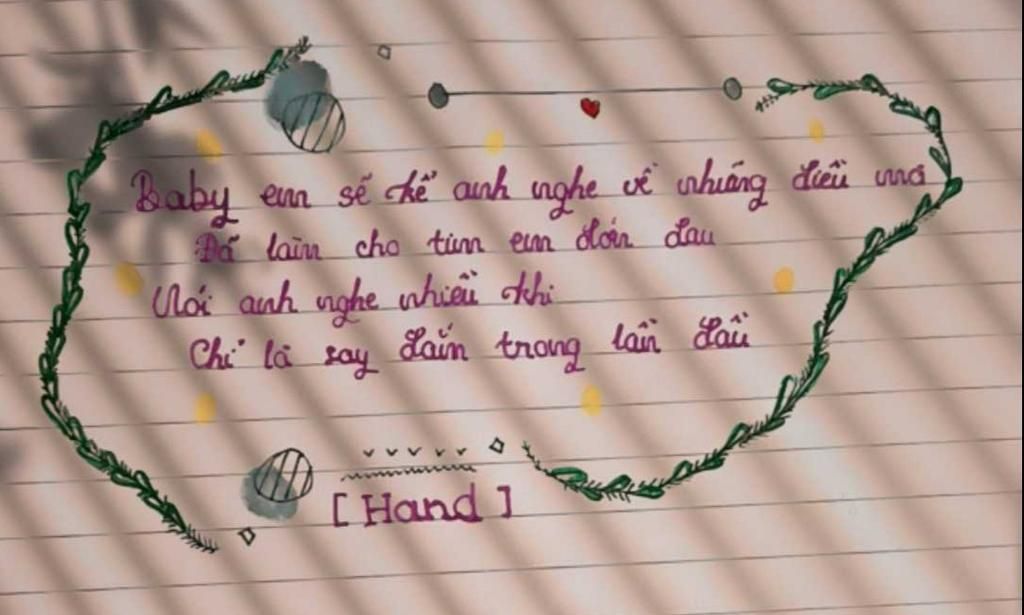 Baby em sẽ kể anh nghe về những điều mà
Đã làm cho tim em đớn đau
Nói anh nghe nhiều khi
Chỉ là say đắm trong lần đầu
[Hand]